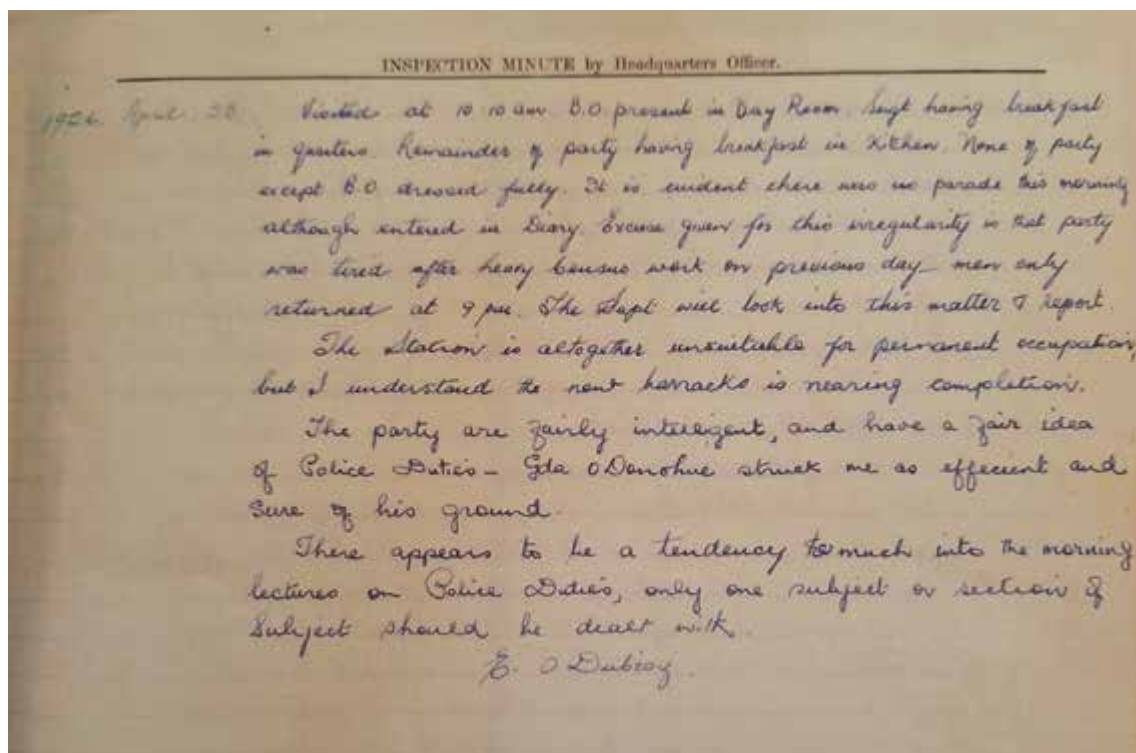 INSPECTION MINUTE by Headquarters Officer.
1926 April 20 Visited at 10 10 am. B.O. present in Day Room. Sergt having breakfast
in quarters. Remainder of party having breakfast in Kitchen. None of party
except B.O. dressed fully. It is evident there was no parade this morning
although entered in Diary. Excuse given for this irregularity is that party
was tired after heavy Census work on previous day – men only
returned at 9 pm. The Supt will look into this matter & report.
The Station is altogether unsuitable for permanent occupation,
but I understand the new barracks is nearing completion.
The party are fairly intelligent, and have a fair idea
of Police Duties – Gda O'Donohue struck me as effecient and
Sure of his ground.
There appears to be a tendency to much into the morning
lectures on Police Duties, only one subject or section of
Subject should be dealt with.
E. O